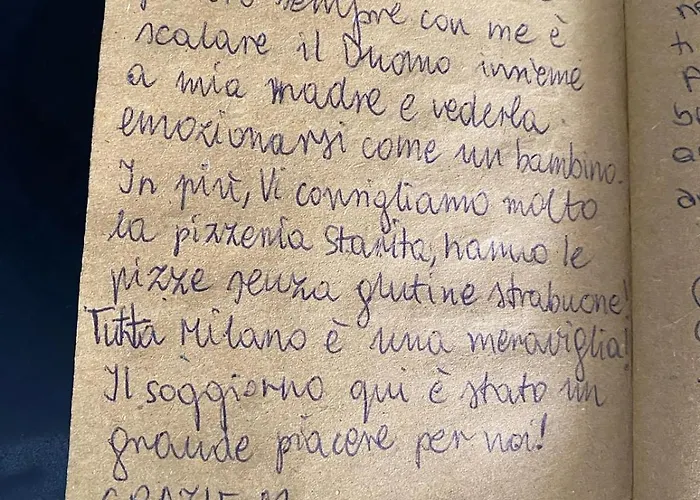 sempre con me è
scalare il Duomo insieme
a mia madre e vederla
emozionarsi come un bambino.
In più, Vi consigliamo molto
la pizzeria Starita, hanno le
pizze senza glutine strabuone!
Tutta Milano è una meraviglia!
Il soggiorno qui è stato un
grande piacere per noi!